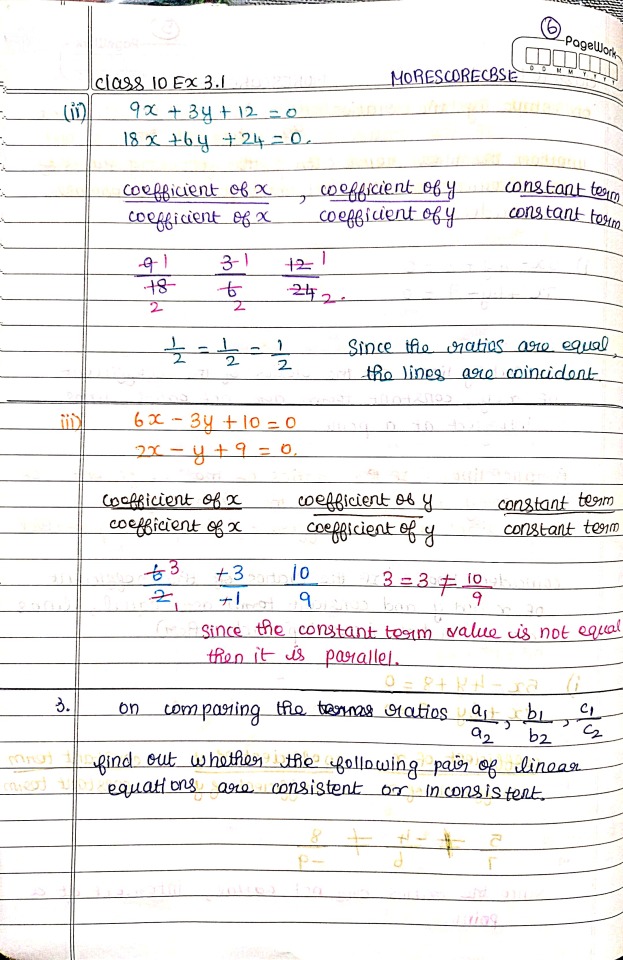 6
PageWork
D D M M Y Y Y Y
class 10 Ex 3.1 MORESCORECBSE
(ii) 9x + 3y + 12 = 0
18x + 6y + 24 = 0.
coefficient of x , coefficient of y constant term
coefficient of x coefficient of y constant term
9 1 3 1 12 1
18 6 24 2.
2 2
1/2 = 1/2 = 1/2 Since the ratios are equal,
the lines are coincident.
iii) 6x - 3y + 10 = 0
2x - y + 9 = 0.
coefficient of x coefficient of y constant term
coefficient of x coefficient of y constant term
6 3 +3 10 3 = 3 ≠ 10/9
2 1 +1 9
Since the constant term value is not equal
then it is parallel.
3. on comparing the ratios a1/a2, b1/b2, c1/c2
find out whether the following pair of linear
equations are consistent or inconsistent.